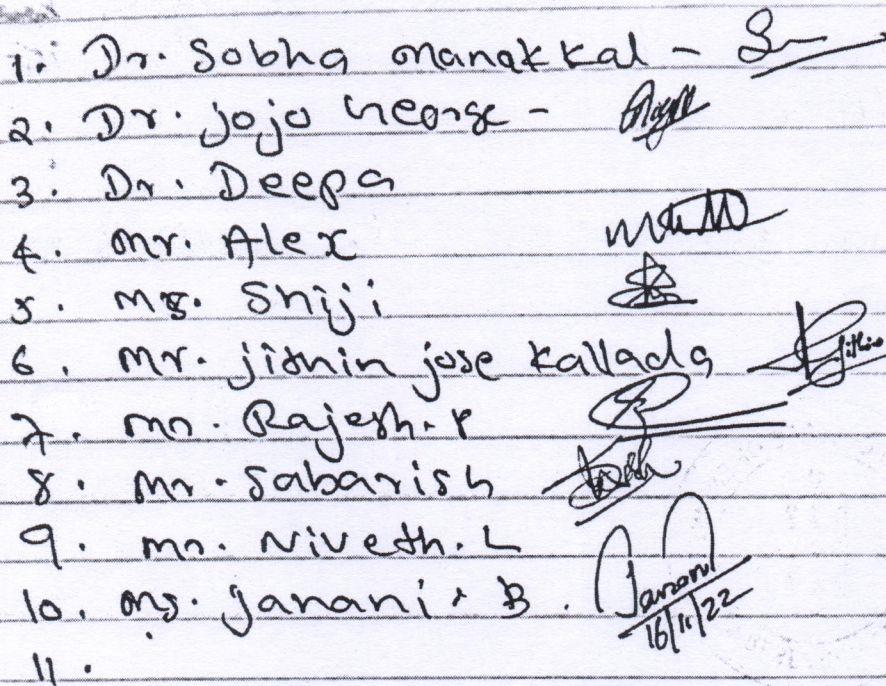 1. Dr. Sobha Manakkal -
2. Dr. Jojo George -
3. Dr. Deepa
4. Mr. Alex
5. Ms. Shiji
6. Mr. Jithin Jose Kallada Jithin
7. Mr. Rajesh. P
8. Mr. Sabarish
9. Mr. Niveth. L
10. Ms. Janani. B. Janani
16/11/22
11.